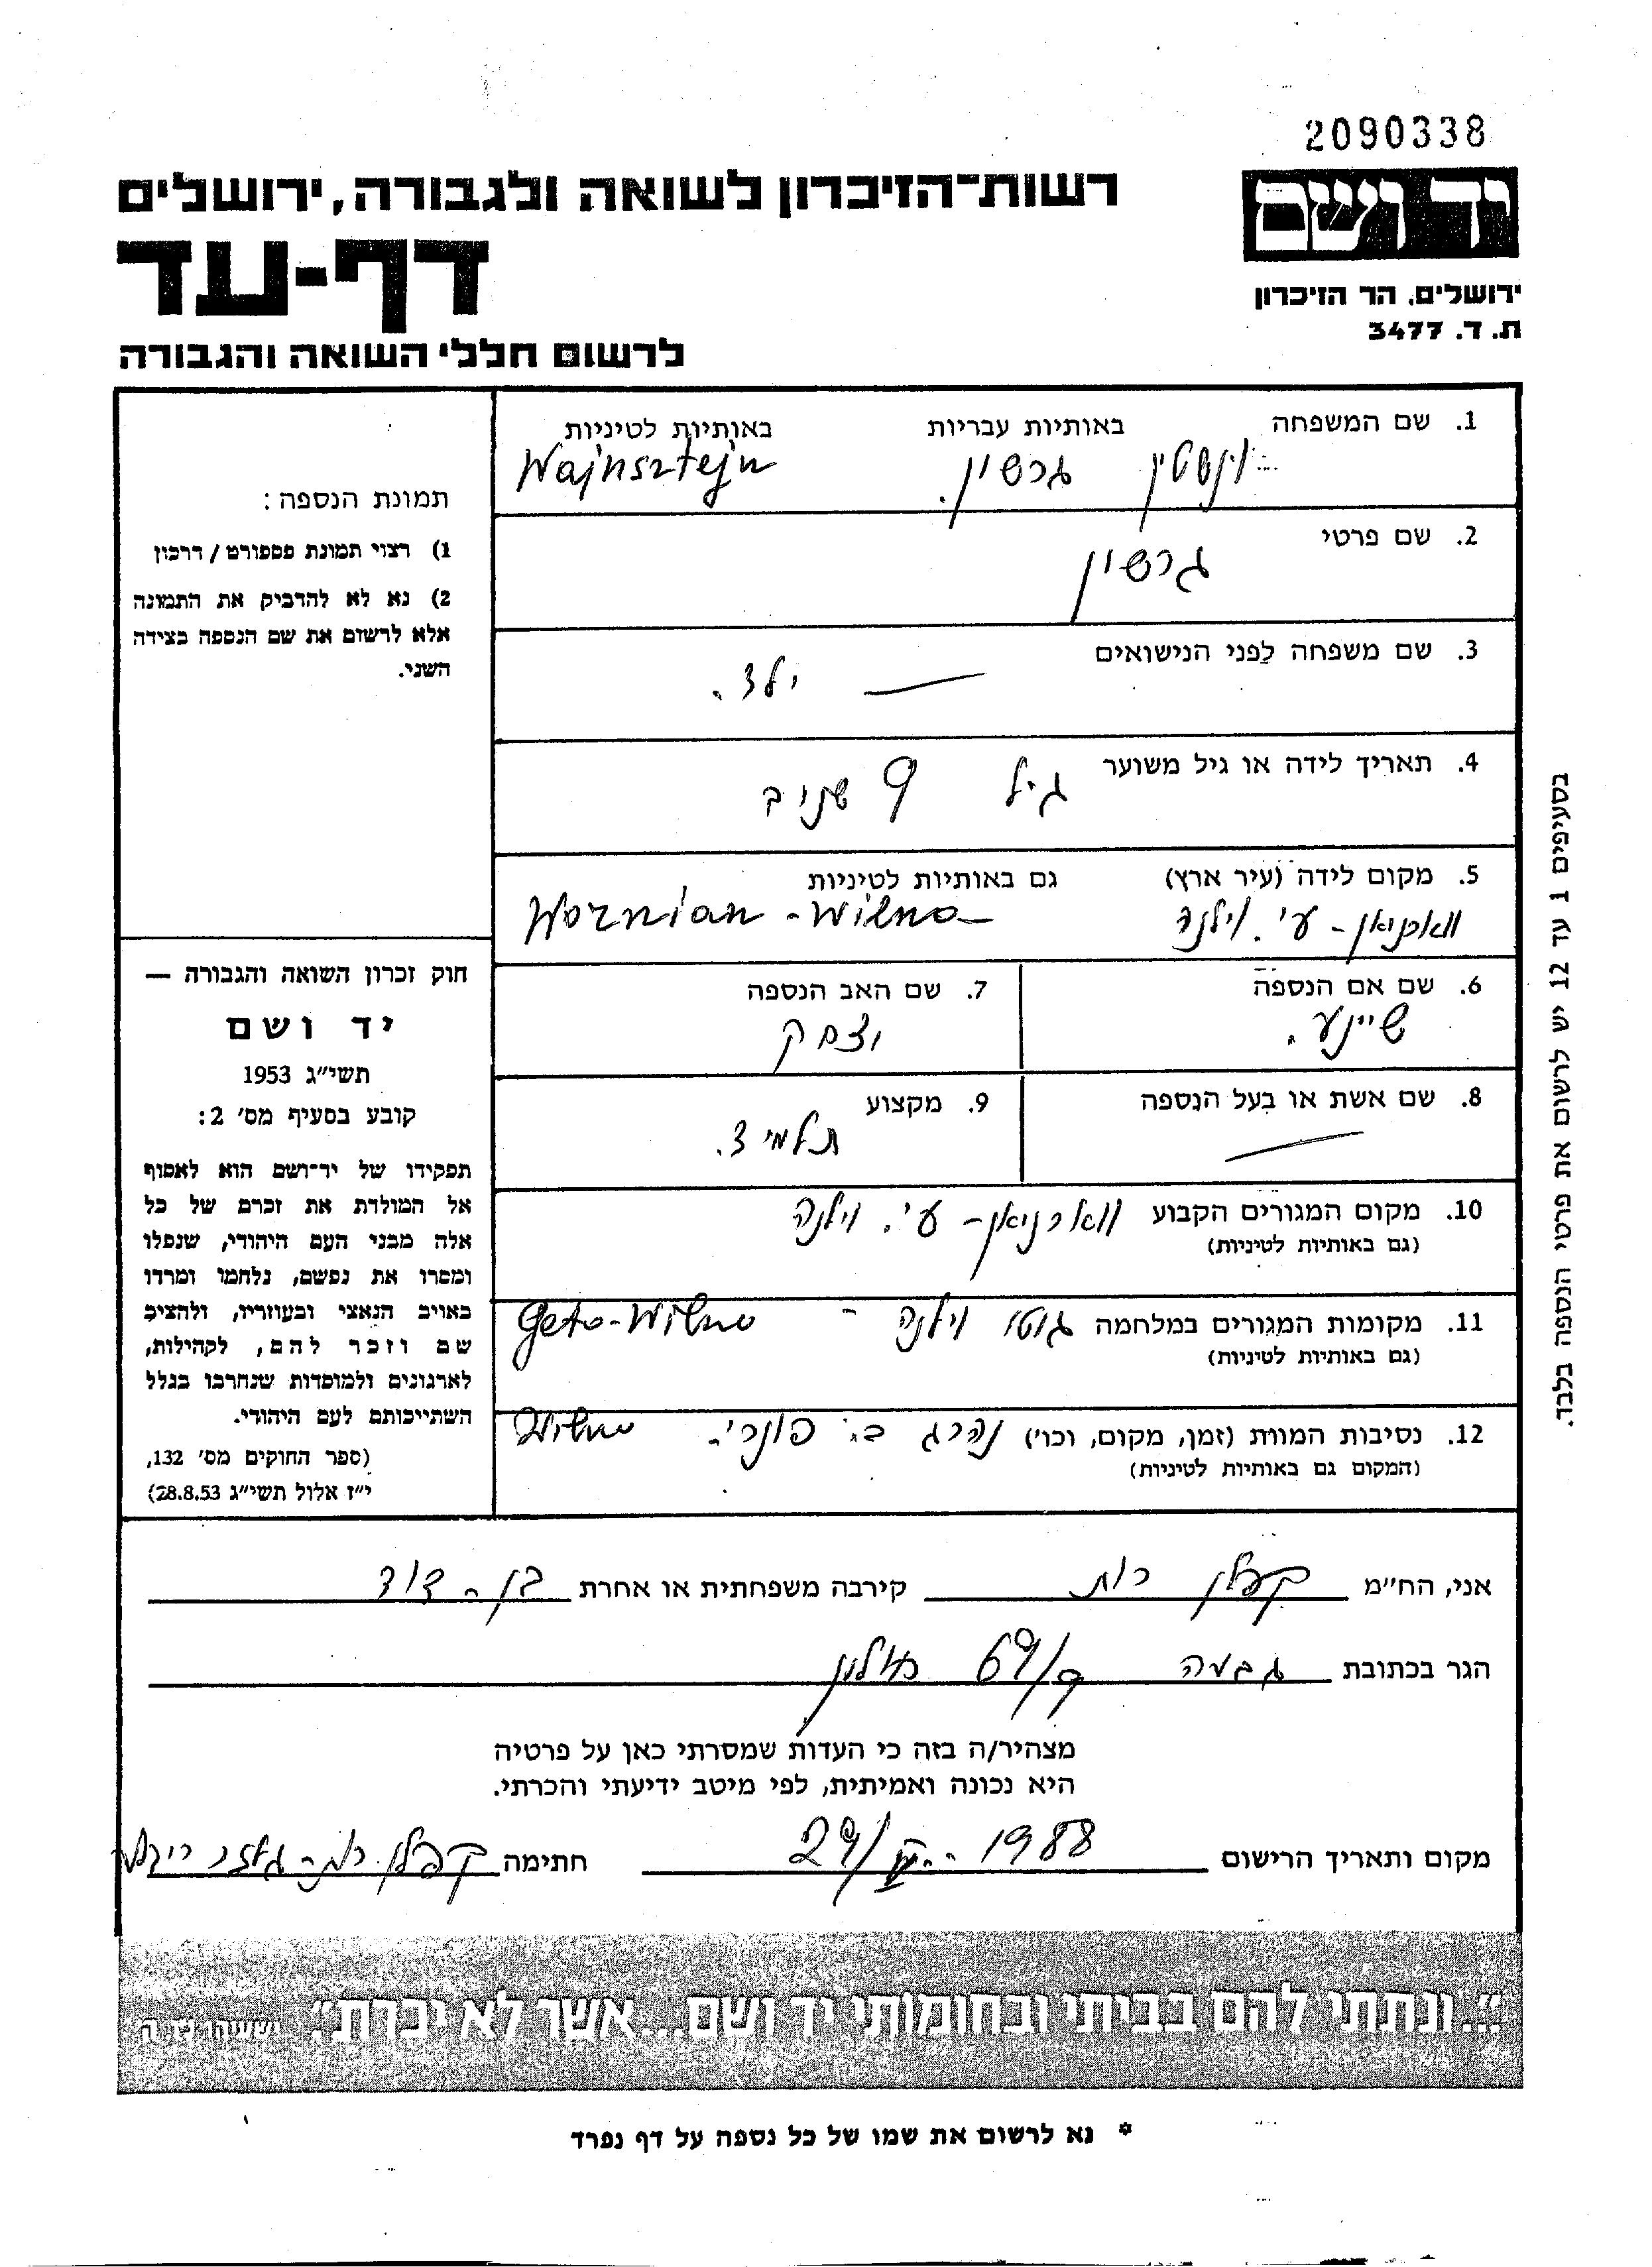 2090338
יד ושם
רשות־הזיכרון לשואה ולגבורה, ירושלים
דף-עד
ירושלים, הר הזיכרון
ת. ד. 3477
לרשום חללי השואה והגבורה
1. שם המשפחה באותיות עבריות באותיות לטיניות
וינשטין גרשון. Wajnsztejn
2. שם פרטי
גרשון
3. שם משפחה לפני הנישואים
— ילד.
4. תאריך לידה או גיל משוער גיל 9 שנים
5. מקום לידה (עיר ארץ) גם באותיות לטיניות
ווארניאן - ע״י. וילנה Wornian - Wilno
6. שם אם הנספה 7. שם האב הנספה
שיינע. יצחק
8. שם אשת או בעל הנספה 9. מקצוע
— תלמיד.
10. מקום המגורים הקבוע ווארניאן - ע״י. וילנה
(גם באותיות לטיניות)
11. מקומות המגורים במלחמה גטו וילנה - Geto-Wilno
(גם באותיות לטיניות)
12. נסיבות המוות (זמן, מקום, וכו׳) נהרג ב: פונרי - Wilno
(המקום גם באותיות לטיניות)
תמונת הנספה:
1) רצוי תמונת פספורט / דרכון
2) נא לא להדביק את התמונה
אלא לרשום את שם הנספה בצידה
השני.
חוק זכרון השואה והגבורה —
יד ושם
תשי״ג 1953
קובע בסעיף מס׳ 2:
תפקידו של יד־ושם הוא לאסוף
אל המולדת את זכרם של כל
אלה מבני העם היהודי, שנפלו
ומסרו את נפשם, נלחמו ומרדו
באויב הנאצי ובעוזריו, ולהציב
שם וזכר להם, לקהילות,
לארגונים ולמוסדות שנחרבו בגלל
השתייכותם לעם היהודי.
(ספר החוקים מס׳ 132,
י״ז אלול תשי״ג 28.8.53)
בסעיפים 1 עד 12 יש לרשום את פרטי הנספה בלבד.
אני, הח״מ קפלן רות קירבה משפחתית או אחרת בן - דוד
הגר בכתובת 69/
מצהיר/ה בזה כי העדות שמסרתי כאן על פרטיה
היא נכונה ואמיתית, לפי מיטב ידיעתי והכרתי.
מקום ותאריך הרישום 29/ 1988 חתימה קפלן רות-
״...ונתתי להם בביתי ובחומותי יד ושם...אשר לא יכרת״. ישעיהו נו, ה
* נא לרשום את שמו של כל נספה על דף נפרד